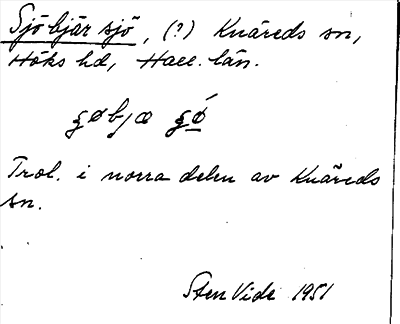 Sjöbjär sjö, (?) Knäreds sn,
Höks hd, Hall. län.
ʂøbjæ ʂǿ
Trol. i norra delen av Knäreds
sn.
Sten Vide 1951